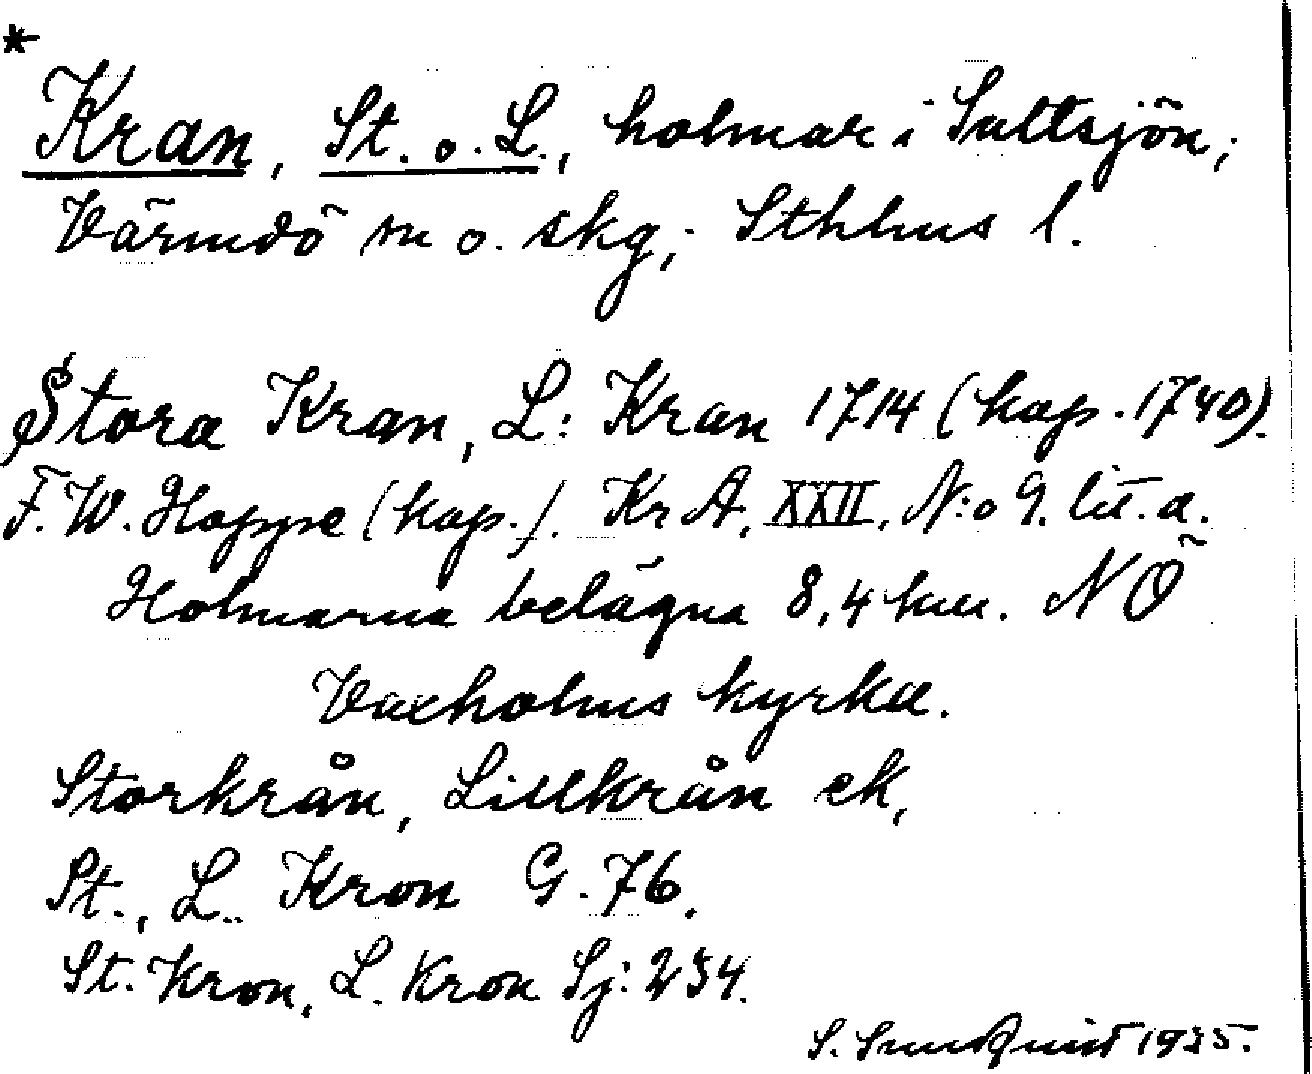 *
Kran, St. o. L., holmar i Saltsjön;
Värmdö sn o. skg; Sthlms l.
Stora Kran, L: Kran 1714 (kop. 1740).
F. W. Hoppe (kop.). Kr A, XXII, N:o 9. lit. a.
Holmarna belägna 8,4 km. NÖ
Vaxholms kyrka.
Storkrån, Lillkrån ek,
St., L.. Kron G. 76.
St. Kron, L. Kron Sj: 234.
S. Sundquist 1935.